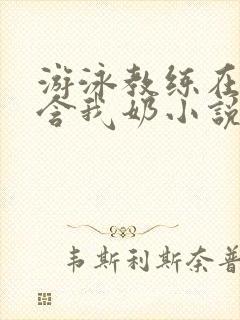 游泳教练在
含我奶小说
韦斯利斯奈普